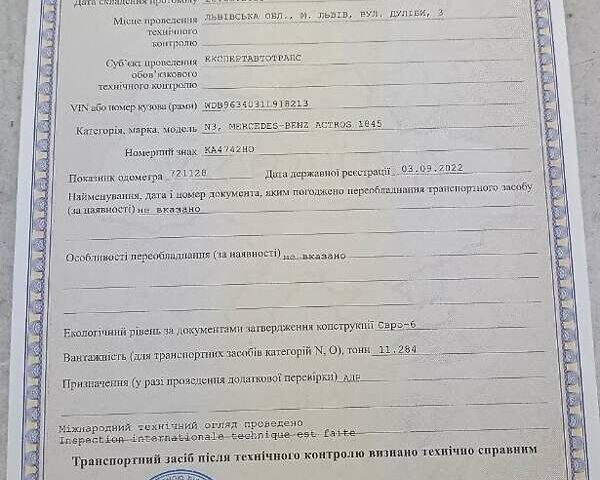 Дата складення протоколу
Місце проведення ЛЬВІВСЬКА ОБЛ., М. ЛЬВІВ, ВУЛ. ДУЛІБИ, 3
технічного
контролю
Суб'єкт проведення ЕКСПЕРТАВТОТРАНС
обов'язкового
технічного контролю
VIN або номер кузова (рами) WDB9634031L918213
Категорія, марка, модель N3, MERCEDES-BENZ ACTROS 1845
Номерний знак КА4742НО
Показник одометра 721128 Дата державної реєстрації 03.09.2022
Найменування, дата і номер документа, яким погоджено переобладнання транспортного засобу
(за наявності) не вказано
Особливості переобладнання (за наявності) не вказано
Екологічний рівень за документами затвердження конструкції Євро-6
Вантажність (для транспортних засобів категорій N, O), тонн 11.284
Призначення (у разі проведення додаткової перевірки) ДПР
Міжнародний технічний огляд проведено
Inspection internationale technique est faite
Транспортний засіб після технічного контролю визнано технічно справним